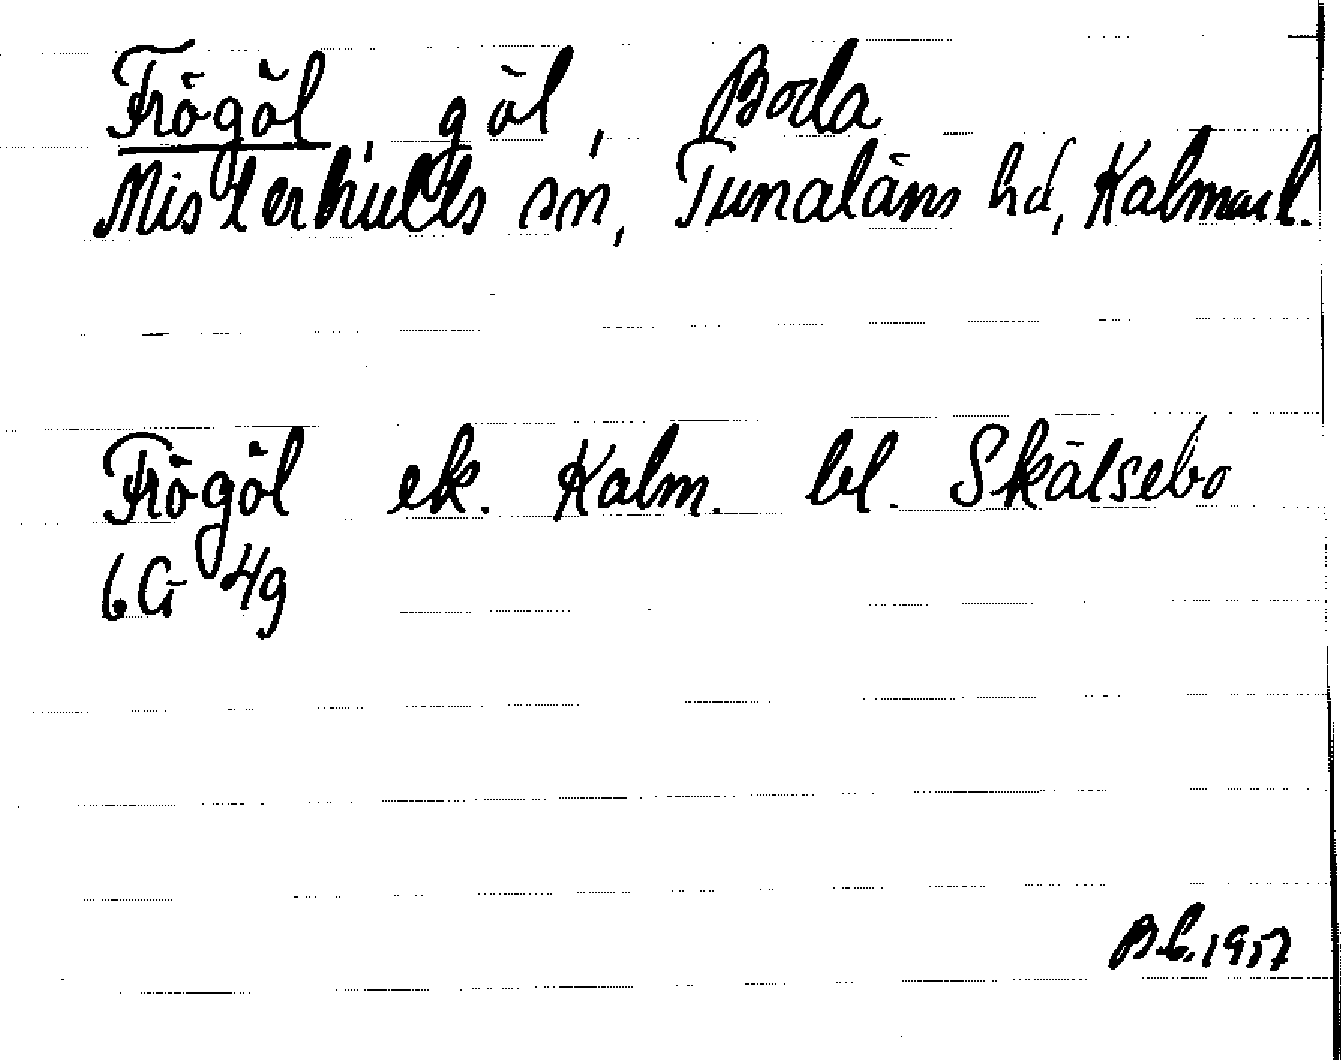 Frögöl, göl, Boda
Misterhults sn, Tunaläns hd, Kalmar l.
Frögöl ek. Kalm. bl. Skälsebo
6G 4g
1957